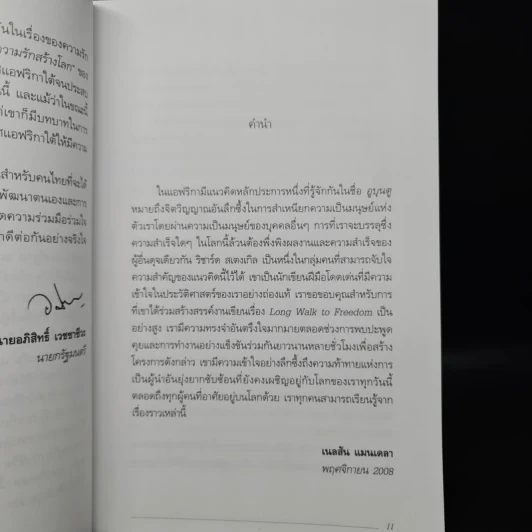 ันในเรื่องของความรัก
วามรักสร้างโลก" ของ
ศแอฟริกาใต้จนประสบ
นี้ และแม้ว่าในขณะนี้
ต่เขาก็มีบทบาทในการ
ศแอฟริกาใต้ให้มีความ
สำหรับคนไทยที่จะได้
พัฒนาตนเองและการ
ดความร่วมมือร่วมใจ
าดีต่อกันอย่างจริงใจ
นายอภิสิทธิ์ เวชชาชีวะ
นายกรัฐมนตรี
คำนำ
ในแอฟริกามีแนวคิดหลักประการหนึ่งที่รู้จักกันในชื่อ อูบุนตู
หมายถึงจิตวิญญาณอันลึกซึ้งในการสำเหนียกความเป็นมนุษย์แห่ง
ตัวเราโดยผ่านความเป็นมนุษย์ของบุคคลอื่นๆ การที่เราจะบรรลุซึ่ง
ความสำเร็จใดๆ ในโลกนี้ล้วนต้องพึ่งพิงผลงานและความสำเร็จของ
ผู้อื่นดุจเดียวกัน ริชาร์ด สเตงเกิล เป็นหนึ่งในกลุ่มคนที่สามารถจับใจ
ความสำคัญของแนวคิดนี้ไว้ได้ เขาเป็นนักเขียนฝีมือโดดเด่นที่มีความ
เข้าใจในประวัติศาสตร์ของเราอย่างถ่องแท้ เราขอขอบคุณสำหรับการ
ที่เขาได้ร่วมสร้างสรรค์งานเขียนเรื่อง Long Walk to Freedom เป็น
อย่างสูง เรามีความทรงจำอันตรึงใจมากมายตลอดช่วงการพบปะพูด
คุยและการทำงานอย่างแข็งขันร่วมกันยาวนานหลายชั่วโมงเพื่อสร้าง
โครงการดังกล่าว เขามีความเข้าใจอย่างลึกซึ้งถึงความท้าทายแห่งการ
เป็นผู้นำอันยุ่งยากซับซ้อนที่ยังคงเผชิญอยู่กับโลกของเราทุกวันนี้
ตลอดถึงทุกผู้คนที่อาศัยอยู่บนโลกด้วย เราทุกคนสามารถเรียนรู้จาก
เรื่องราวเหล่านี้
เนลสัน แมนเดลา
พฤศจิกายน 2008
11